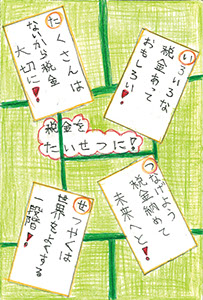 たくさんは
ないから税金
大切に!
いろいろな
税金あって
おもしろい!
税金を
たいせつに!
せつやくは
世界をよくする
一段階!
つなげよう
税金納めて
未来へと!